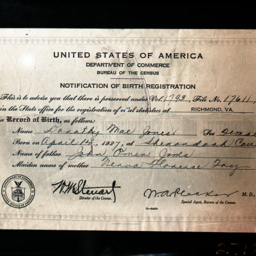 UNITED STATES OF AMERICA
DEPARTMENT OF COMMERCE
BUREAU OF THE CENSUS
NOTIFICATION OF BIRTH REGISTRATION
This is to advise you that there is preserved under Vol. 1793, File No. 17611
in the State office for the registration of vital statistics at RICHMOND, VA.
a Record of Birth, as follows:
Name Dorothy Mae Jones Sex
Born on April 14, 1937, at Shenandoah
Name of father John Jones
Maiden name of mother
W.H. Steuart
Director of the Census.
M.D.
Special Agent, Bureau of the Census.